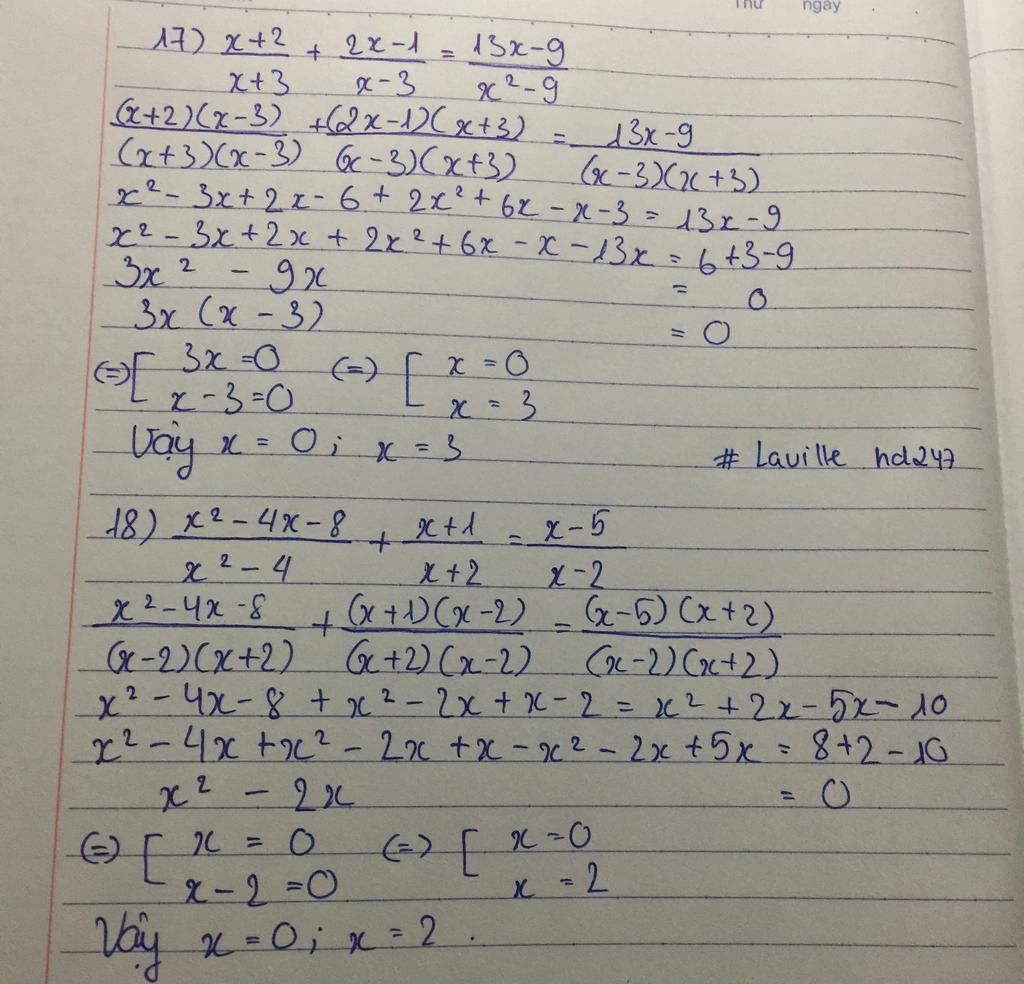 Thứ ngày
17) x+2/x+3 + 2x-1/x-3 = 13x-9/x²-9
(x+2)(x-3)/(x+3)(x-3) + (2x-1)(x+3)/(x-3)(x+3) = 13x-9/(x-3)(x+3)
x² - 3x + 2x - 6 + 2x² + 6x - x - 3 = 13x - 9
x² - 3x + 2x + 2x² + 6x - x - 13x = 6+3-9
3x² - 9x = 0
3x (x - 3) = 0
(=) [ 3x = 0 (=) [ x = 0
x - 3 = 0 x = 3
Vậy x = 0 ; x = 3 # Laville hd247
18) x² - 4x - 8/x² - 4 + x+1/x+2 = x-5/x-2
x² - 4x - 8/(x-2)(x+2) + (x+1)(x-2)/(x+2)(x-2) = (x-5)(x+2)/(x-2)(x+2)
x² - 4x - 8 + x² - 2x + x - 2 = x² + 2x - 5x - 10
x² - 4x + x² - 2x + x - x² - 2x + 5x = 8+2-10
x² - 2x = 0
(=) [ x = 0 (=) [ x = 0
x - 2 = 0 x = 2
Vậy x = 0 ; x = 2 .